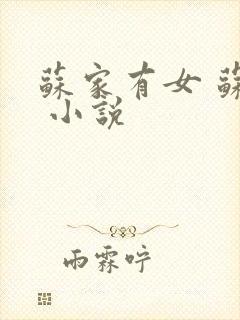 蘇家有女 蘇
小說
雨霖咛